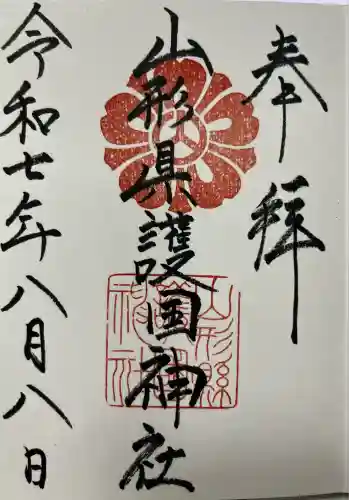 奉拝
山形県護国神社
令和七年八月八日